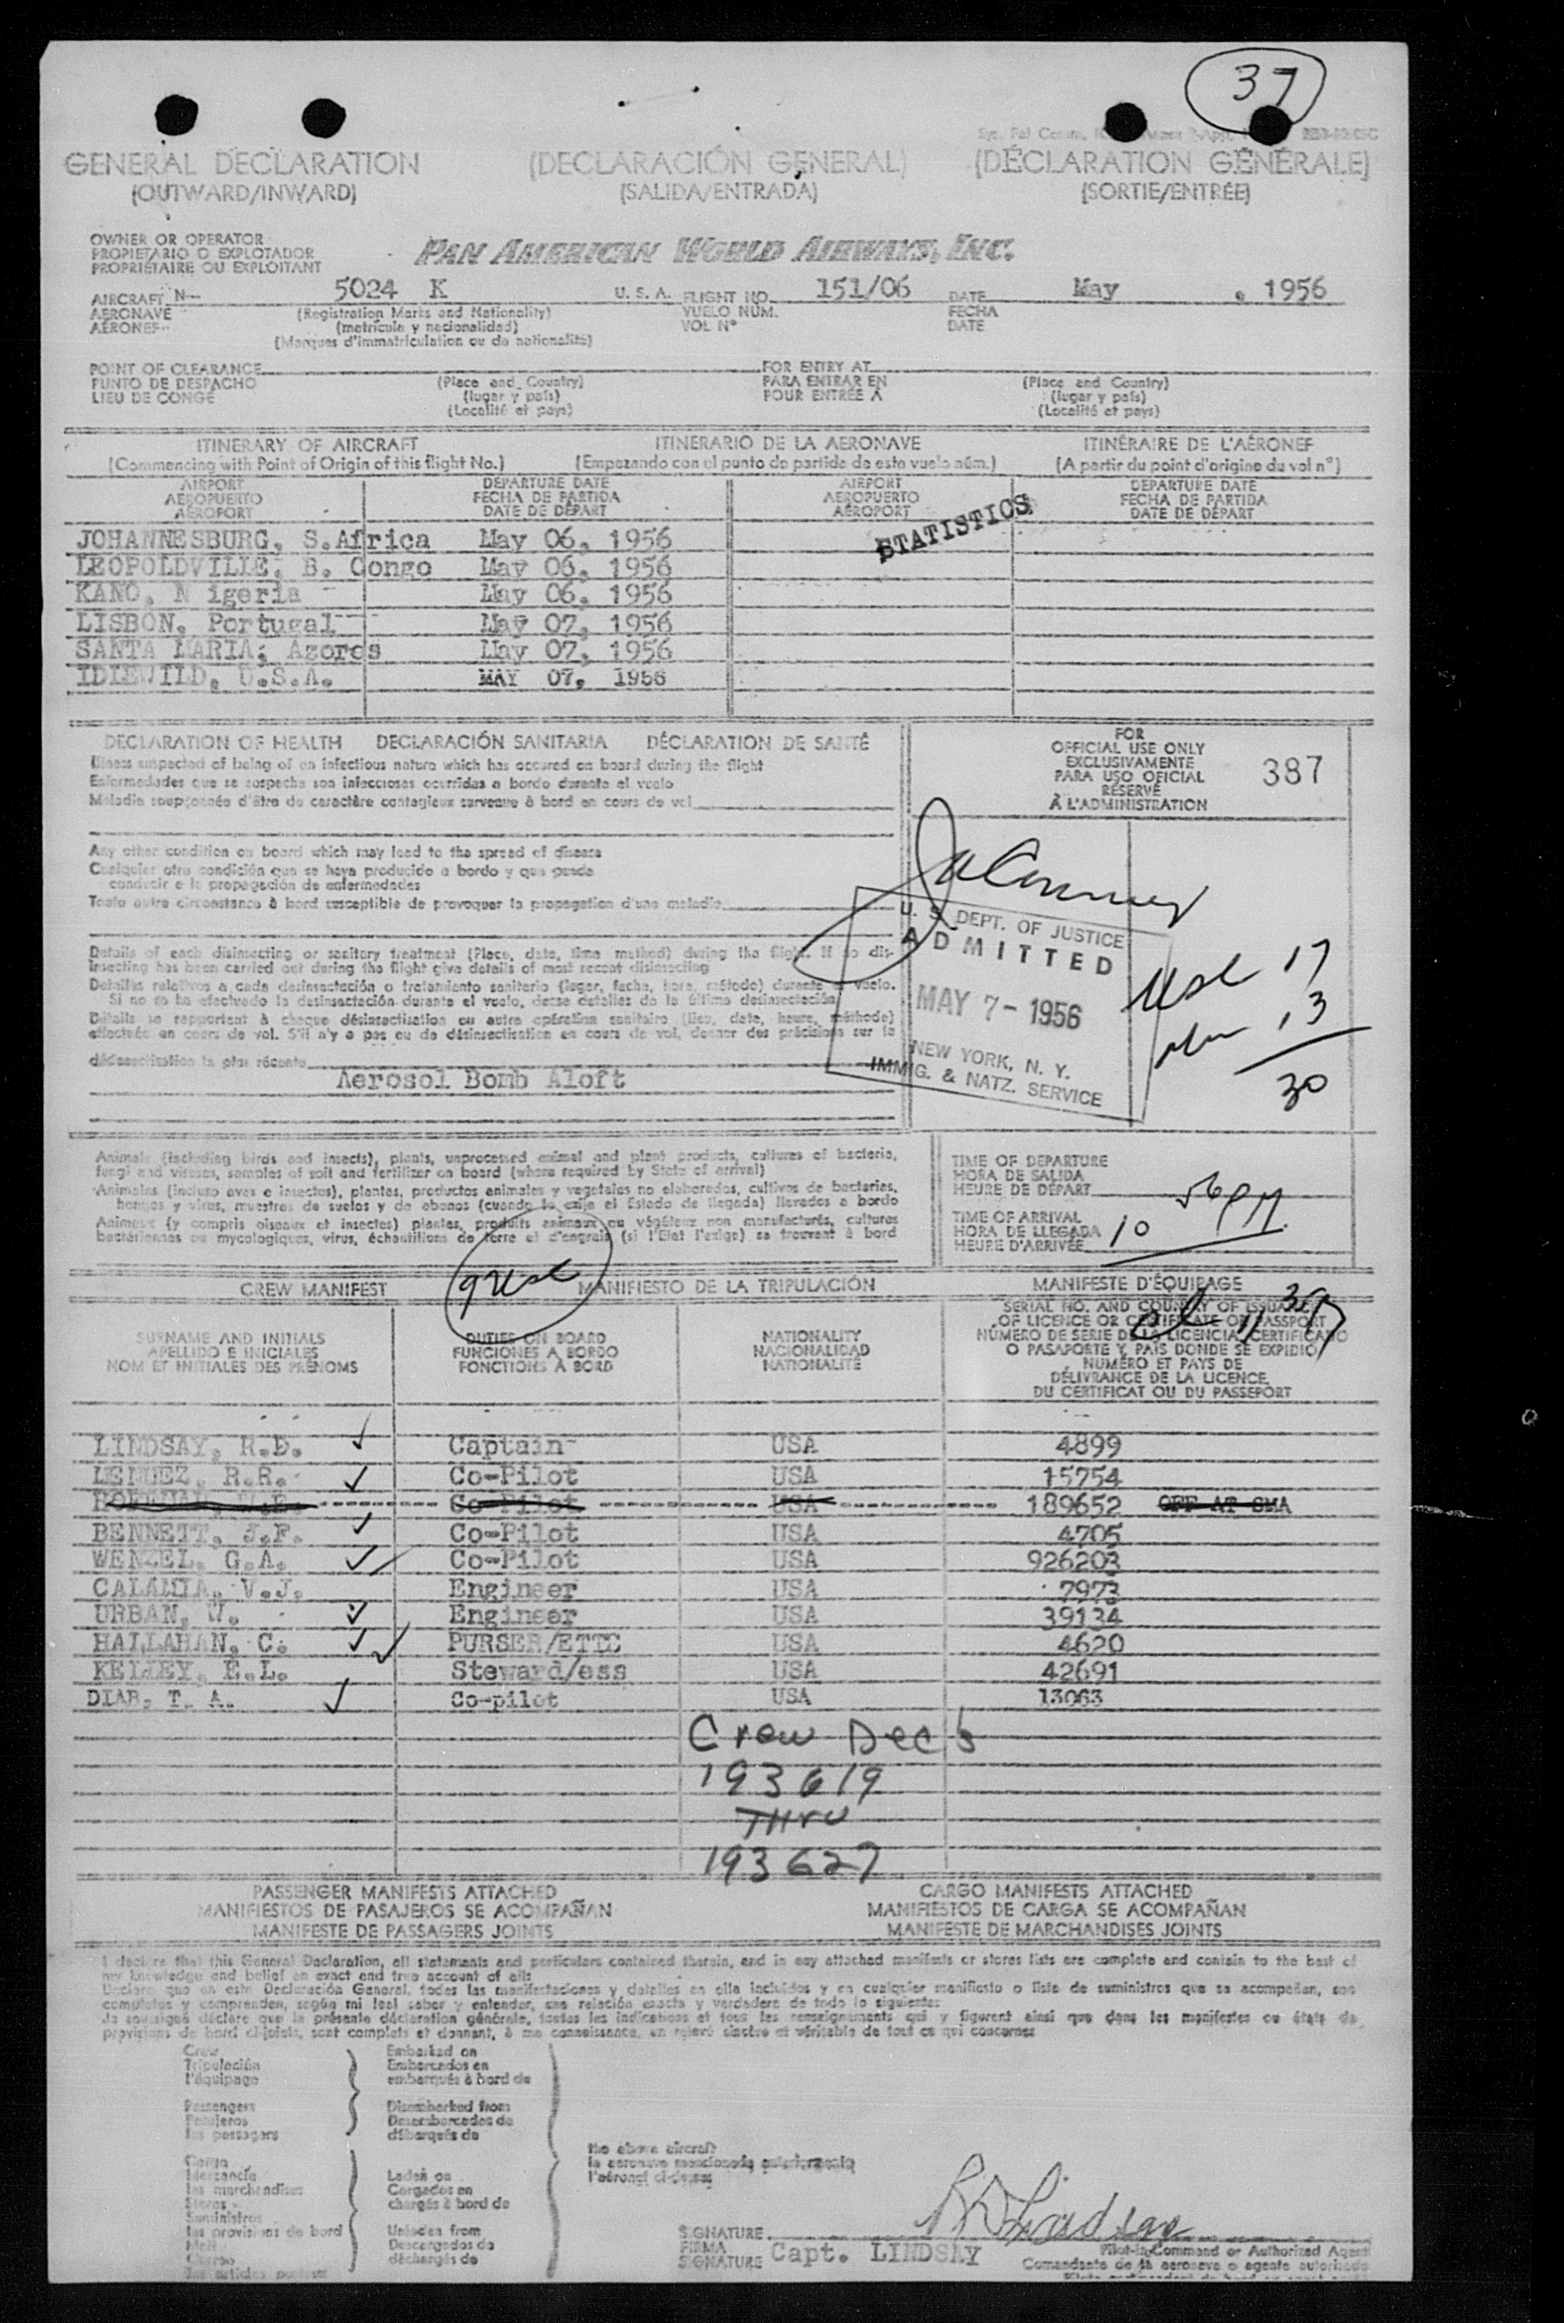 37
GENERAL DECLARATION (DECLARACIÓN GENERAL) (DÉCLARATION GÉNÉRALE)
(OUTWARD/INWARD) (SALIDA/ENTRADA) (SORTIE/ENTRÉE)
OWNER OR OPERATOR
PROPIETARIO O EXPLOTADOR
PROPRIÉTAIRE OU EXPLOITANT
PAN AMERICAN WORLD AIRWAYS, INC.
AIRCRAFT N- 5024 K U. S. A. FLIGHT NO. 151/06 DATE May , 1956
AERONAVE (Registration Marks and Nationality) VUELO NÚM. FECHA
AÉRONEF (matrícula y nacionalidad) VOL N° DATE
(Marques d'immatriculation ou de nationalité)
POINT OF CLEARANCE FOR ENTRY AT
PUNTO DE DESPACHO (Place and Country) PARA ENTRAR EN (Place and Country)
LIEU DE CONGÉ (lugar y país) POUR ENTRÉE À (lugar y país)
(Localité et pays) (Localité et pays)
ITINERARY OF AIRCRAFT ITINERARIO DE LA AERONAVE ITINÉRAIRE DE L'AÉRONEF
(Commencing with Point of Origin of this flight No.) (Empezando con el punto de partida de este vuelo núm.) (A partir du point d'origine du vol n°)
AIRPORT DEPARTURE DATE AIRPORT DEPARTURE DATE
AEROPUERTO FECHA DE PARTIDA AEROPUERTO FECHA DE PARTIDA
AÉROPORT DATE DE DÉPART AÉROPORT DATE DE DÉPART
STATISTICS
JOHANNESBURG, S.Africa May 06, 1956
LEOPOLDVILLE, B. Congo May 06, 1956
KANO, N igeria May 06, 1956
LISBON, Portugal May 07, 1956
SANTA MARIA, Azores May 07, 1956
IDLEWILD, U.S.A. MAY 07, 1956
DECLARATION OF HEALTH DECLARACIÓN SANITARIA DÉCLARATION DE SANTÉ
Illness suspected of being of an infectious nature which has occured on board during the flight
Enfermedades que se sospecha son infecciosas ocurridas a bordo durante el vuelo
Maladie soupçonnée d'être de caractère contagieux survenue à bord en cours de vol
FOR
OFFICIAL USE ONLY
EXCLUSIVAMENTE
PARA USO OFICIAL
RESERVÉ
À L'ADMINISTRATION
387
Any other condition on board which may lead to the spread of disease
Cualquier otra condición que se haya producido a bordo y que pueda
conducir a la propagación de enfermedades
Toute autre circonstance à bord susceptible de provoquer la propagation d'une maladie
U. S. DEPT. OF JUSTICE
ADMITTED
MAY 7 - 1956
NEW YORK, N. Y.
IMMIG. & NATZ. SERVICE
17
13
30
Details of each disinsecting or sanitary treatment (Place, date, time method) during the flight. If no dis-
insecting has been carried out during the flight give details of most recent disinsecting
Detalles relativos a cada desinsectación o tratamiento sanitario (lugar, fecha, hora, método) durante el vuelo.
Si no se ha efectuado la desinsectación durante el vuelo, dense detalles de la última desinsectación
Détails se rapportant à chaque désinsectisation ou autre opération sanitaire (lieu, date, heure, méthode)
effectuée en cours de vol. S'il n'y a pas eu de désinsectisation en cours de vol, donner des précisions sur la
désinsectisation la plus récente
Aerosol Bomb Aloft
Animals (including birds and insects), plants, unprocessed animal and plant products, cultures of bacteria,
fungi and viruses, samples of soil and fertilizer on board (where required by State of arrival)
Animales (incluso aves e insectos), plantas, productos animales y vegetales no elaborados, cultivos de bacterias,
hongos y virus, muestras de suelos y de abonos (cuando lo exija el Estado de llegada) llevados a bordo
Animaux (y compris oiseaux et insectes) plantes, produits animaux ou végétaux non manufacturés, cultures
bactériennes ou mycologiques, virus, échantillons de terre et d'engrais (si l'Etat l'exige) se trouvant à bord
TIME OF DEPARTURE
HORA DE SALIDA
HEURE DE DÉPART
TIME OF ARRIVAL
HORA DE LLEGADA
HEURE D'ARRIVÉE
10 56 PM
CREW MANIFEST MANIFIESTO DE LA TRIPULACIÓN MANIFESTE D'ÉQUIPAGE
SURNAME AND INITIALS
APELLIDO E INICIALES
NOM ET INITIALES DES PRÉNOMS
DUTIES ON BOARD
FUNCIONES A BORDO
FONCTIONS À BORD
NATIONALITY
NACIONALIDAD
NATIONALITÉ
SERIAL NO. AND COUNTRY OF ISSUANCE
OF LICENCE OR CERTIFICATE OR PASSPORT
NÚMERO DE SERIE DE LA LICENCIA, CERTIFICADO
O PASAPORTE Y PAÍS DONDE SE EXPIDIÓ
NUMÉRO ET PAYS DE
DÉLIVRANCE DE LA LICENCE,
DU CERTIFICAT OU DU PASSEPORT
LINDSAY, R.D. Captain USA 4899
LENDEZ, R.R. Co-Pilot USA 15754
Co-Pilot USA 189652 OFF AT SMA
BENNETT, J.F. Co-Pilot USA 4705
WENZEL, G.A. Co-Pilot USA 926203
CALAMIA, V.J. Engineer USA 7973
URBAN, W. Engineer USA 39134
HALLAHAN, C. PURSER/ETTE USA 4620
KELLEY, E.L. Steward/ess USA 42691
DIAB, T. A. Co-pilot USA 13063
Crew Dec's
193619
THRU
193627
PASSENGER MANIFESTS ATTACHED CARGO MANIFESTS ATTACHED
MANIFIESTOS DE PASAJEROS SE ACOMPAÑAN MANIFIESTOS DE CARGA SE ACOMPAÑAN
MANIFESTE DE PASSAGERS JOINTS MANIFESTE DE MARCHANDISES JOINTS
I declare that this General Declaration, all statements and particulars contained therein, and in any attached manifests or stores lists are complete and contain to the best of
my knowledge and belief an exact and true account of all:
Declaro que en esta Declaración General, todas las manifestaciones y detalles en ella incluidos y en cualquier manifiesto o lista de suministros que se acompañan, son
completos y comprenden, según mi leal saber y entender, una relación exacta y verdadera de todo lo siguiente:
Je soussigné déclare que la présente déclaration générale, toutes les indications et tous les renseignements qui y figurent ainsi que dans les manifestes ou états de
provisions de bord ci-joints, sont complets et donnent, à ma connaissance, un relevé sincère et véritable de tout ce qui concerne:
Crew Embarked on
Tripulación Embarcados en
l'équipage embarqués à bord de
Passengers Disembarked from
Pasajeros Desembarcados de
les passagers débarqués de
the above aircraft
la aeronave mencionada anteriormente
l'aéronef ci-dessus
Cargo
Mercancía Laden on
les marchandises Cargados en
Stores chargés à bord de
Suministros
les provisions de bord Unladen from
Descargados de
déchargés de
SIGNATURE RD Lindsay
FIRMA Pilot-in-Command or Authorized Agent
SIGNATURE Capt. LINDSAY Comandante de la aeronave o agente autorizado